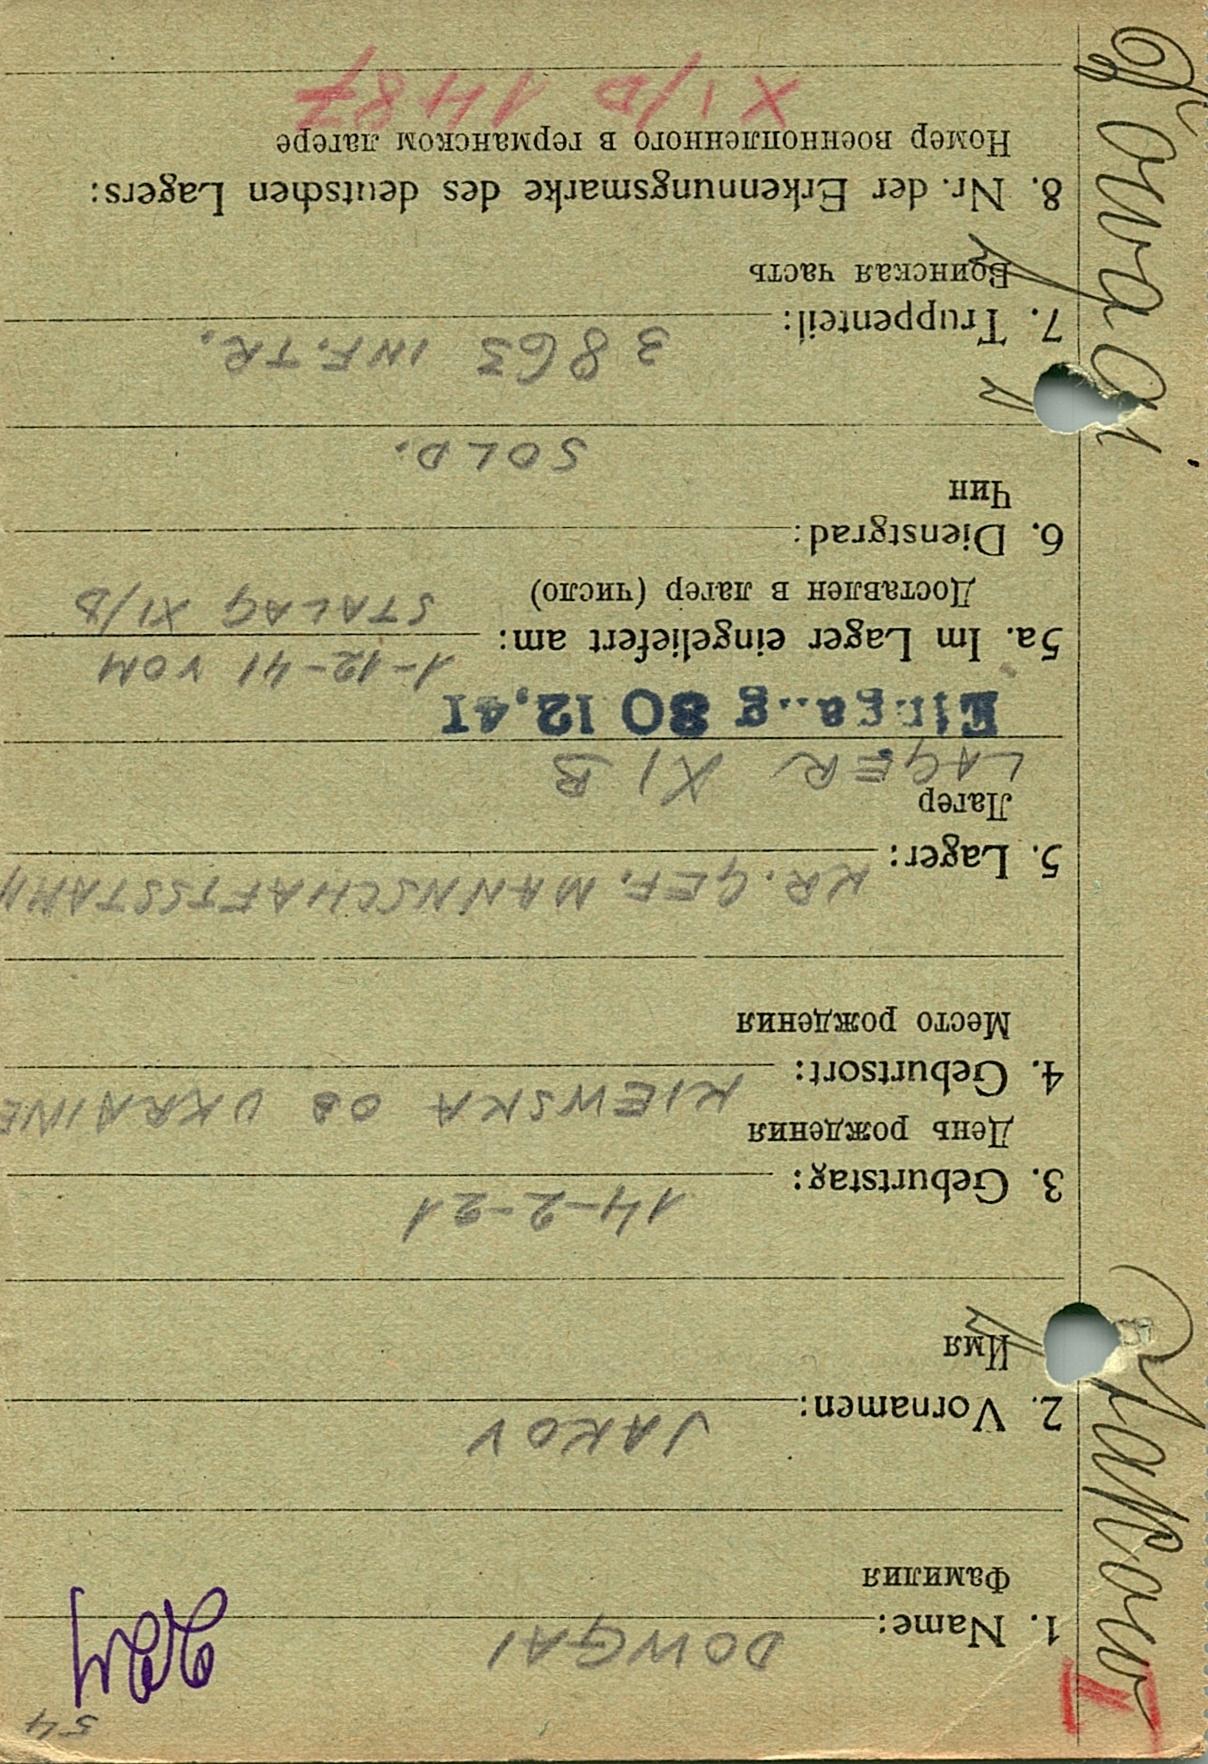 54
I
1. Name: DOWGAI
Фамилия
2. Vornamen: JAKOV
Имя
3. Geburtstag: 14-2-21
День рождения
4. Geburtsort: KIEWSKA OB UKRAINE
Место рождения
5. Lager: KR. GEF. MANNSCHAFTSSTAMM
Лагер
LAGER XI B
30 12. 41
1-12-41 VOM
5a. Im Lager eingeliefert am:
Доставлен в лагер (число) STALAG XI/D
6. Dienstgrad:
Чин
SOLD.
7. Truppenteil: 3863 INF. TR.
Воинская часть
8. Nr. der Erkennungsmarke des deutschen Lagers:
Номер военнопленного в германском лагере
XI/D 1487
Dowgai
Jakow